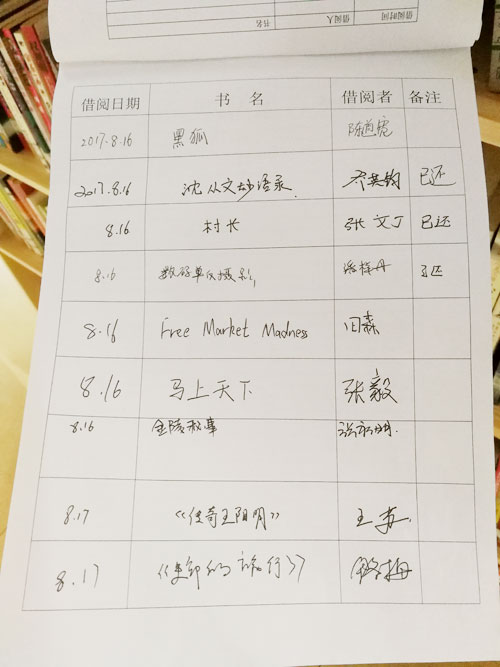 书名 借阅人 借阅时间
借阅日期 书 名 借阅者 备注
2017.8.16 黑狐
2017.8.16 沈从文妙语录 已还
8.16 村长 张文丁 已还
8.16 数码单反摄影 已还
8.16 Free Market Madness 田森
8.16 马上天下 张毅
8.16 金陵秋事
8.17 《传奇王阳明》 王苏
8.17 的旅行》